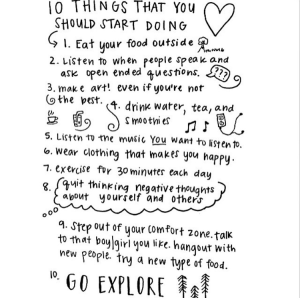 10 THINGS THAT YOU
SHOULD START DOING
1. Eat your food outside
2. Listen to when people speak and
ask open ended questions.
???
3. make art! even if you're not
the best.
4. drink water, tea, and
smoothies
5. Listen to the music You want to listen to.
6. Wear clothing that makes you happy.
7. exercise for 30 minutes each day
8. quit thinking negative thoughts
about yourself and others
9. step out of your comfort zone. talk
to that boy|girl you like. hangout with
new people. try a new type of food.
10. GO EXPLORE